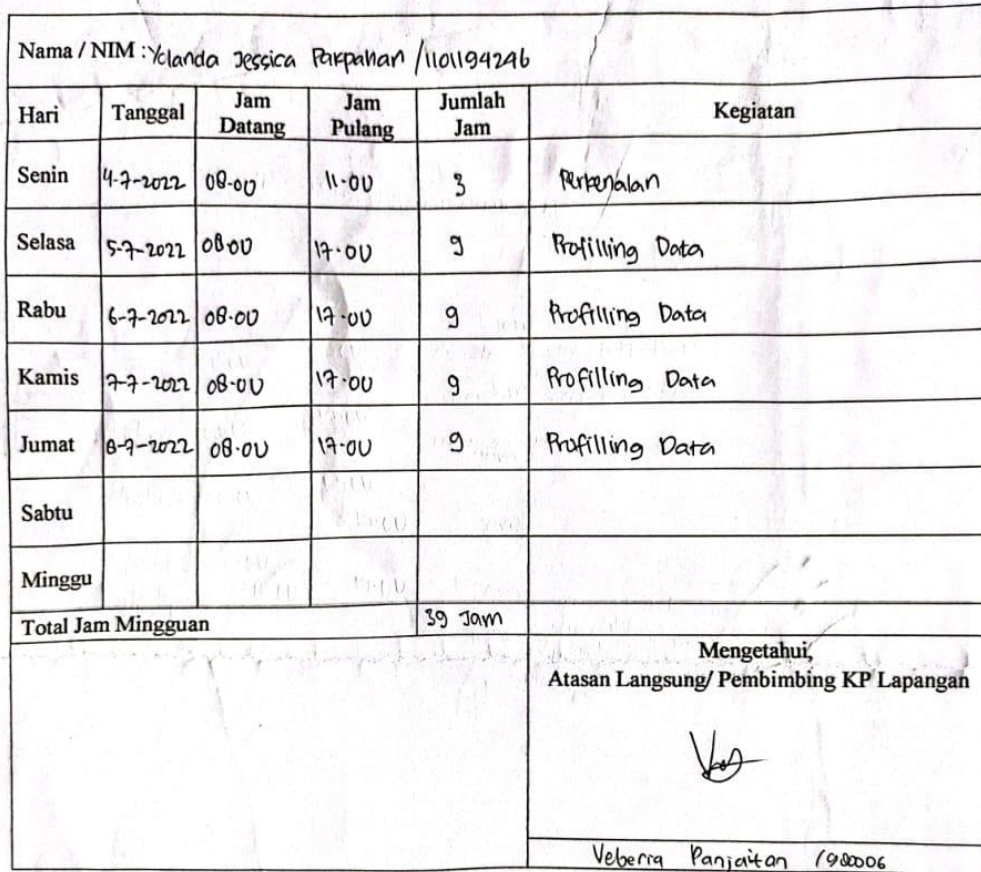 Nama / NIM : Yolanda Jessica Parpahan / 1101194246
Hari Tanggal Jam Datang Jam Pulang Jumlah Jam Kegiatan
Senin 4-7-2022 08.00 11.00 3 Perkenalan
Selasa 5-7-2022 08.00 17.00 9 Profilling Data
Rabu 6-7-2022 08.00 17.00 9 Profilling Data
Kamis 7-7-2022 08.00 17.00 9 Profilling Data
Jumat 8-7-2022 08.00 17.00 9 Profilling Data
Sabtu
Minggu
Total Jam Mingguan 39 Jam
Mengetahui,
Atasan Langsung/ Pembimbing KP Lapangan
Veberra Panjaitan